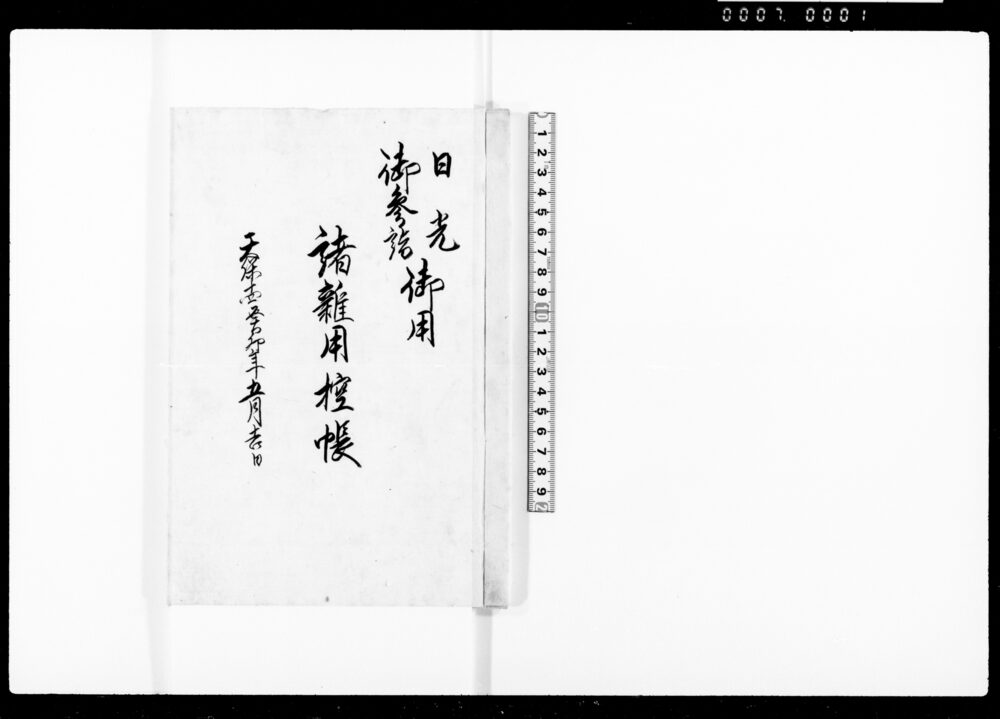 0007. 0001
日光
御参詣
御用
諸雑用控帳
天保十四癸卯年五月吉日
1 2 3 4 5 6 7 8 9 10 1 2 3 4 5 6 7 8 9 2